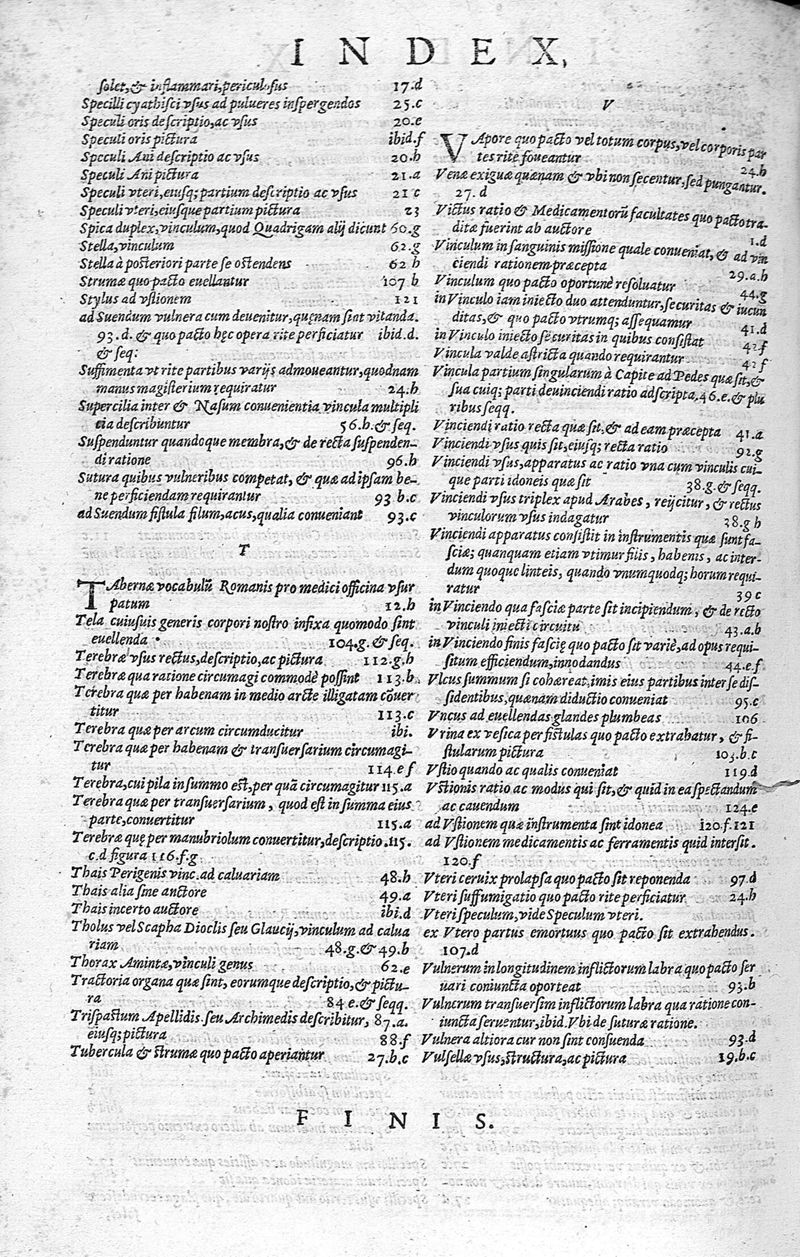 INDEX,
ſolet, & inflammari, periculoſus 17.d
Specilli cyathiſci vſus ad pulueres inſpergendos 25.c
Speculi oris deſcriptio, ac vſus 20.e
Speculi oris pictura ibid.f
Speculi Ani deſcriptio ac vſus 20.h
Speculi Ani pictura 21.a
Speculi vteri, eiuſq; partium deſcriptio ac vſus 21 c
Speculi vteri, eiuſque partium pictura 23
Spica duplex, vinculum, quod Quadrigam alij dicunt 60.g
Stella, vinculum 62.g
Stella à poſteriori parte ſe oſtendens 62 h
Strumæ quo pacto euellantur 107 b
Stylus ad vſtionem 121
ad Suendum vulnera cum deuenitur, quęnam ſint vitanda.
93.d. & quo pacto hęc opera rite perficiatur ibid.d.
& ſeq:
Suffimenta vt rite partibus varijs admoueantur, quodnam
manus magiſterium requiratur 24.h
Supercilia inter & Naſum conuenientia vincula multipli
cia deſcribuntur 56.h.& ſeq.
Suſpenduntur quandoque membra, & de recta ſuſpenden-
di ratione 96.h
Sutura quibus vulneribus competat, & quæ ad ipſam be-
ne perficiendam requirantur 93 b.c
ad Suendum fiſtula filum, acus, qualia conueniant 93.c
T
TAbernæ vocabulū Romanis pro medici officina vſur
patum 12.h
Tela cuiuſuis generis corpori noſtro infixa quomodo ſint
euellenda. 104.g. & ſeq.
Terebræ vſus rectus, deſcriptio, ac pictura 112.g.h
Terebræ qua ratione circumagi commodè poſſint 113.b
Terebra quæ per habenam in medio arcte illigatam cōuer
titur 113.c
Terebra quæ per arcum circumducitur ibi.
Terebra quæ per habenam & tranſuerſarium circumagi-
tur 114.e f
Terebra, cui pila in ſummo eſt, per quā circumagitur 115.a
Terebra quæ per tranſuerſarium, quod eſt in ſumma eius
parte, conuertitur 115.a
Terebræ quę per manubriolum conuertitur, deſcriptio, 115.
c.d figura 116.f.g
Thais Perigenis vinc. ad caluariam 48.h
Thais alia ſine auctore 49.a
Thais incerto auctore ibi.d
Tholus vel Scapha Dioclis ſeu Glaucij, vinculum ad calua
riam 48.g.& 49.b
Thorax Amintæ, vinculi genus 62.e
Tractoria organa quæ ſint, eorumque deſcriptio, & pictu-
ra 84 e.& ſeqq.
Triſpaſtum Apellidis ſeu Archimedis deſcribitur, 87.a.
eiuſq; pictura 88.f
Tubercula & ſtrumæ quo pacto aperiantur 27.b.c
V
VApore quo pacto vel totum corpus, vel corporis par
tes rite foueantur 24.h
Venæ exiguæ quænam & vbi non ſecentur, ſed pungantur.
27.d
Victus ratio & Medicamentorū facultates quo pacto tra-
ditæ fuerint ab auctore 1.d
Vinculum in ſanguinis miſſione quale conueniat, & ad vin
ciendi rationem præcepta 29.a.b
Vinculum quo pacto oportunè reſoluatur 44.g
in Vinculo iam iniecto duo attenduntur, ſecuritas & iucun
ditas, & quo pacto vtrumq; aſſequamur 41.d
in Vinculo iniecto ſecuritas in quibus conſiſtat 42.f
Vincula valde aſtricta quando requirantur 42 f
Vincula partium ſingularum à Capite ad Pedes quæ ſit, &
ſua cuiq; parti deuinciendi ratio adſcripta. 46.e.& plu
ribus ſeqq.
Vinciendi ratio recta quæ ſit, & ad eam præcepta 41.a
Vinciendi vſus quis ſit, eiuſq; recta ratio 92.g
Vinciendi vſus, apparatus ac ratio vna cum vinculis cui-
que parti idoneis quæ ſit 38.g.& ſeqq.
Vinciendi vſus triplex apud Arabes, reijcitur, & rectus
vinculorum vſus indagatur 38.g h
Vinciendi apparatus conſiſtit in inſtrumentis quæ ſunt fa-
ſciæ; quanquam etiam vtimur filis, habenis, ac inter-
dum quoque linteis, quando vnumquodq; horum requi-
ratur 39 c
in Vinciendo qua faſciæ parte ſit incipiendum, & de recto
vinculi iniecti circuitu 43.a.b
in Vinciendo finis faſcię quo pacto ſit variè, ad opus requi-
ſitum efficiendum, innodandus 44.e.f
Vlcus ſummum ſi cohæreat, imis eius partibus inter ſe diſ-
ſidentibus, quænam diductio conueniat 95.c
Vncus ad euellendas glandes plumbeas 106
Vrina ex veſica per fiſtulas quo pacto extrahatur, & fi-
ſtularum pictura 103.b.c
Vſtio quando ac qualis conueniat 119.d
Vſtionis ratio ac modus qui ſit, & quid in ea ſpectandum
ac cauendum 124.e
ad Vſtionem quæ inſtrumenta ſint idonea 120.f.121
ad Vſtionem medicamentis ac ferramentis quid interſit.
120.f
Vteri ceruix prolapſa quo pacto ſit reponenda 97.d
Vteri ſuffumigatio quo pacto rite perficiatur 24.h
Vteri ſpeculum, vide Speculum vteri.
ex Vtero partus emortuus quo pacto ſit extrahendus.
107.d
Vulnerum in longitudinem inflictorum labra quo pacto ſer
uari coniuncta oporteat 93.b
Vulnerum tranſuerſim inflictorum labra qua ratione con-
iuncta ſeruentur, ibid. Vbi de ſuturæ ratione.
Vulnera altiora cur non ſint conſuenda 93.d
Vulſellæ vſus, ſtructura, ac pictura 19.b.c
FINIS.